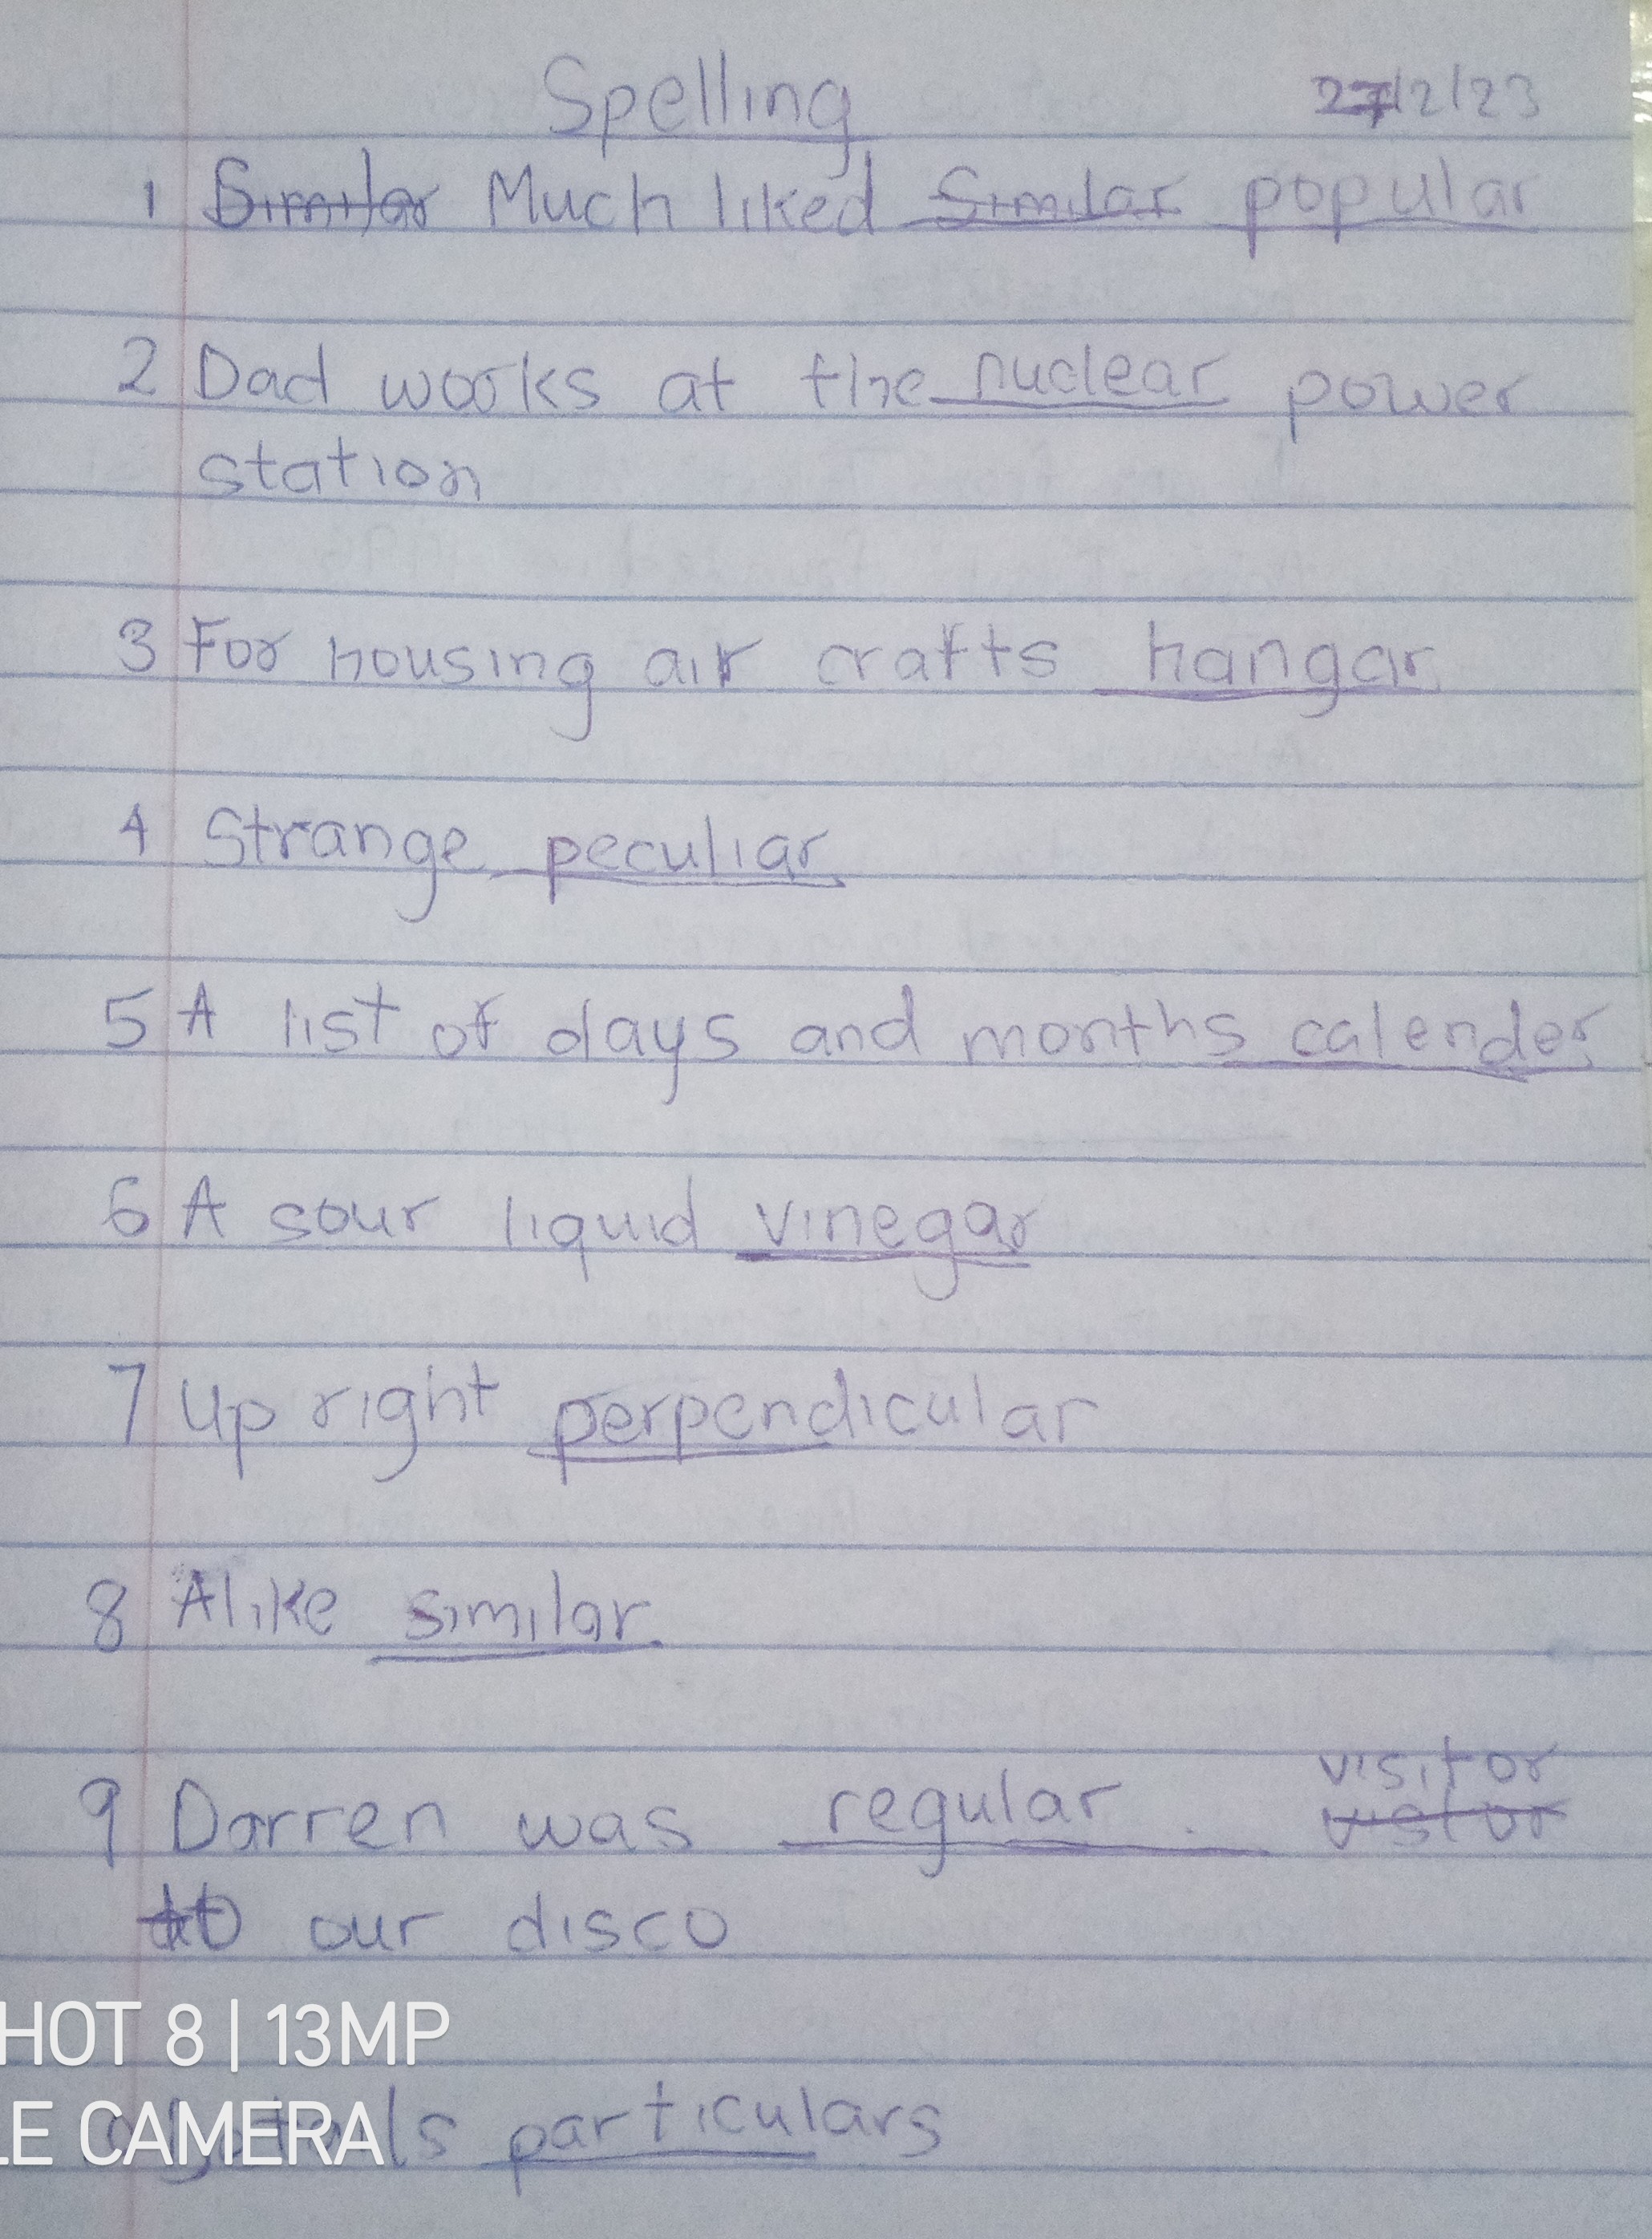 Spelling 27/2/23
1 Similar Much liked Similar popular
2 Dad works at the nuclear power
station
3 For housing air crafts hangar
4 Strange peculiar
5 A list of days and months calender
6 A sour liquid vinegar
7 Up right perpendicular
8 Alike similar
visitor
9 Darren was regular vistor
to our disco
HOT 8 | 13MP
particulars
LE CAMERA